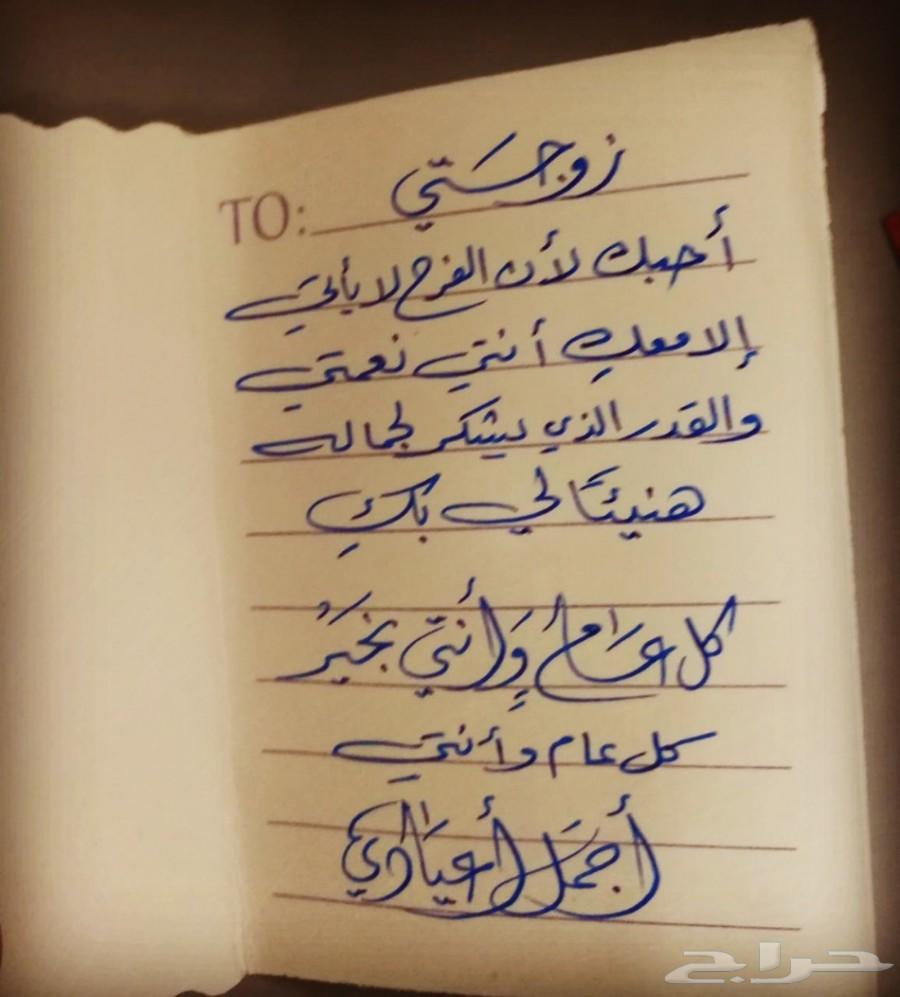 TO: زوجتي
أحبك لأن الفرح لا يأتي
إلا معكِ أنتي نعمتي
والقدر الذي يشكر لجماله
هنيئًا لي بكِ
كل عام وأنتي بخير
كل عام وأنتي
أجمل أعيادي
حراج